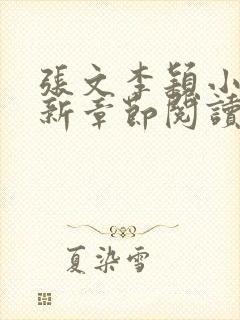 張文李穎小
新章節閱讀
夏染雪